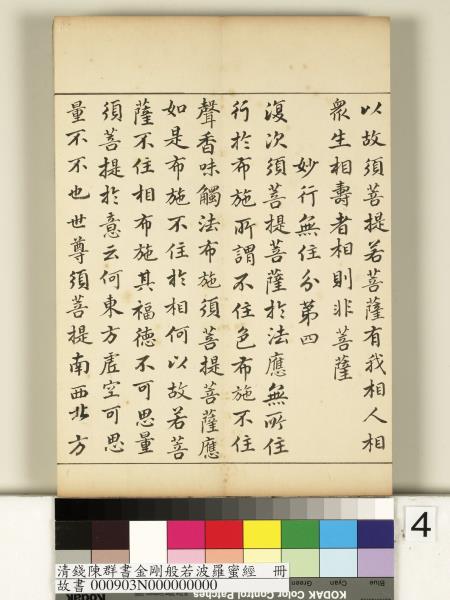 以故須菩提若菩薩有我相人相
衆生相壽者相則非菩薩
妙行無住分第四
復次須菩提菩薩於法應無所住
行於布施所謂不住色布施不住
聲香味觸法布施須菩提菩薩應
如是布施不住於相何以故若菩
薩不住相布施其福德不可思量
須菩提於意云何東方虛空可思
量不不也世尊須菩提南西北方
4
清錢陳群書金剛般若波羅蜜經　冊
故書 000903N000000000
Blue Cyan Green
KODAK Color Control Patches